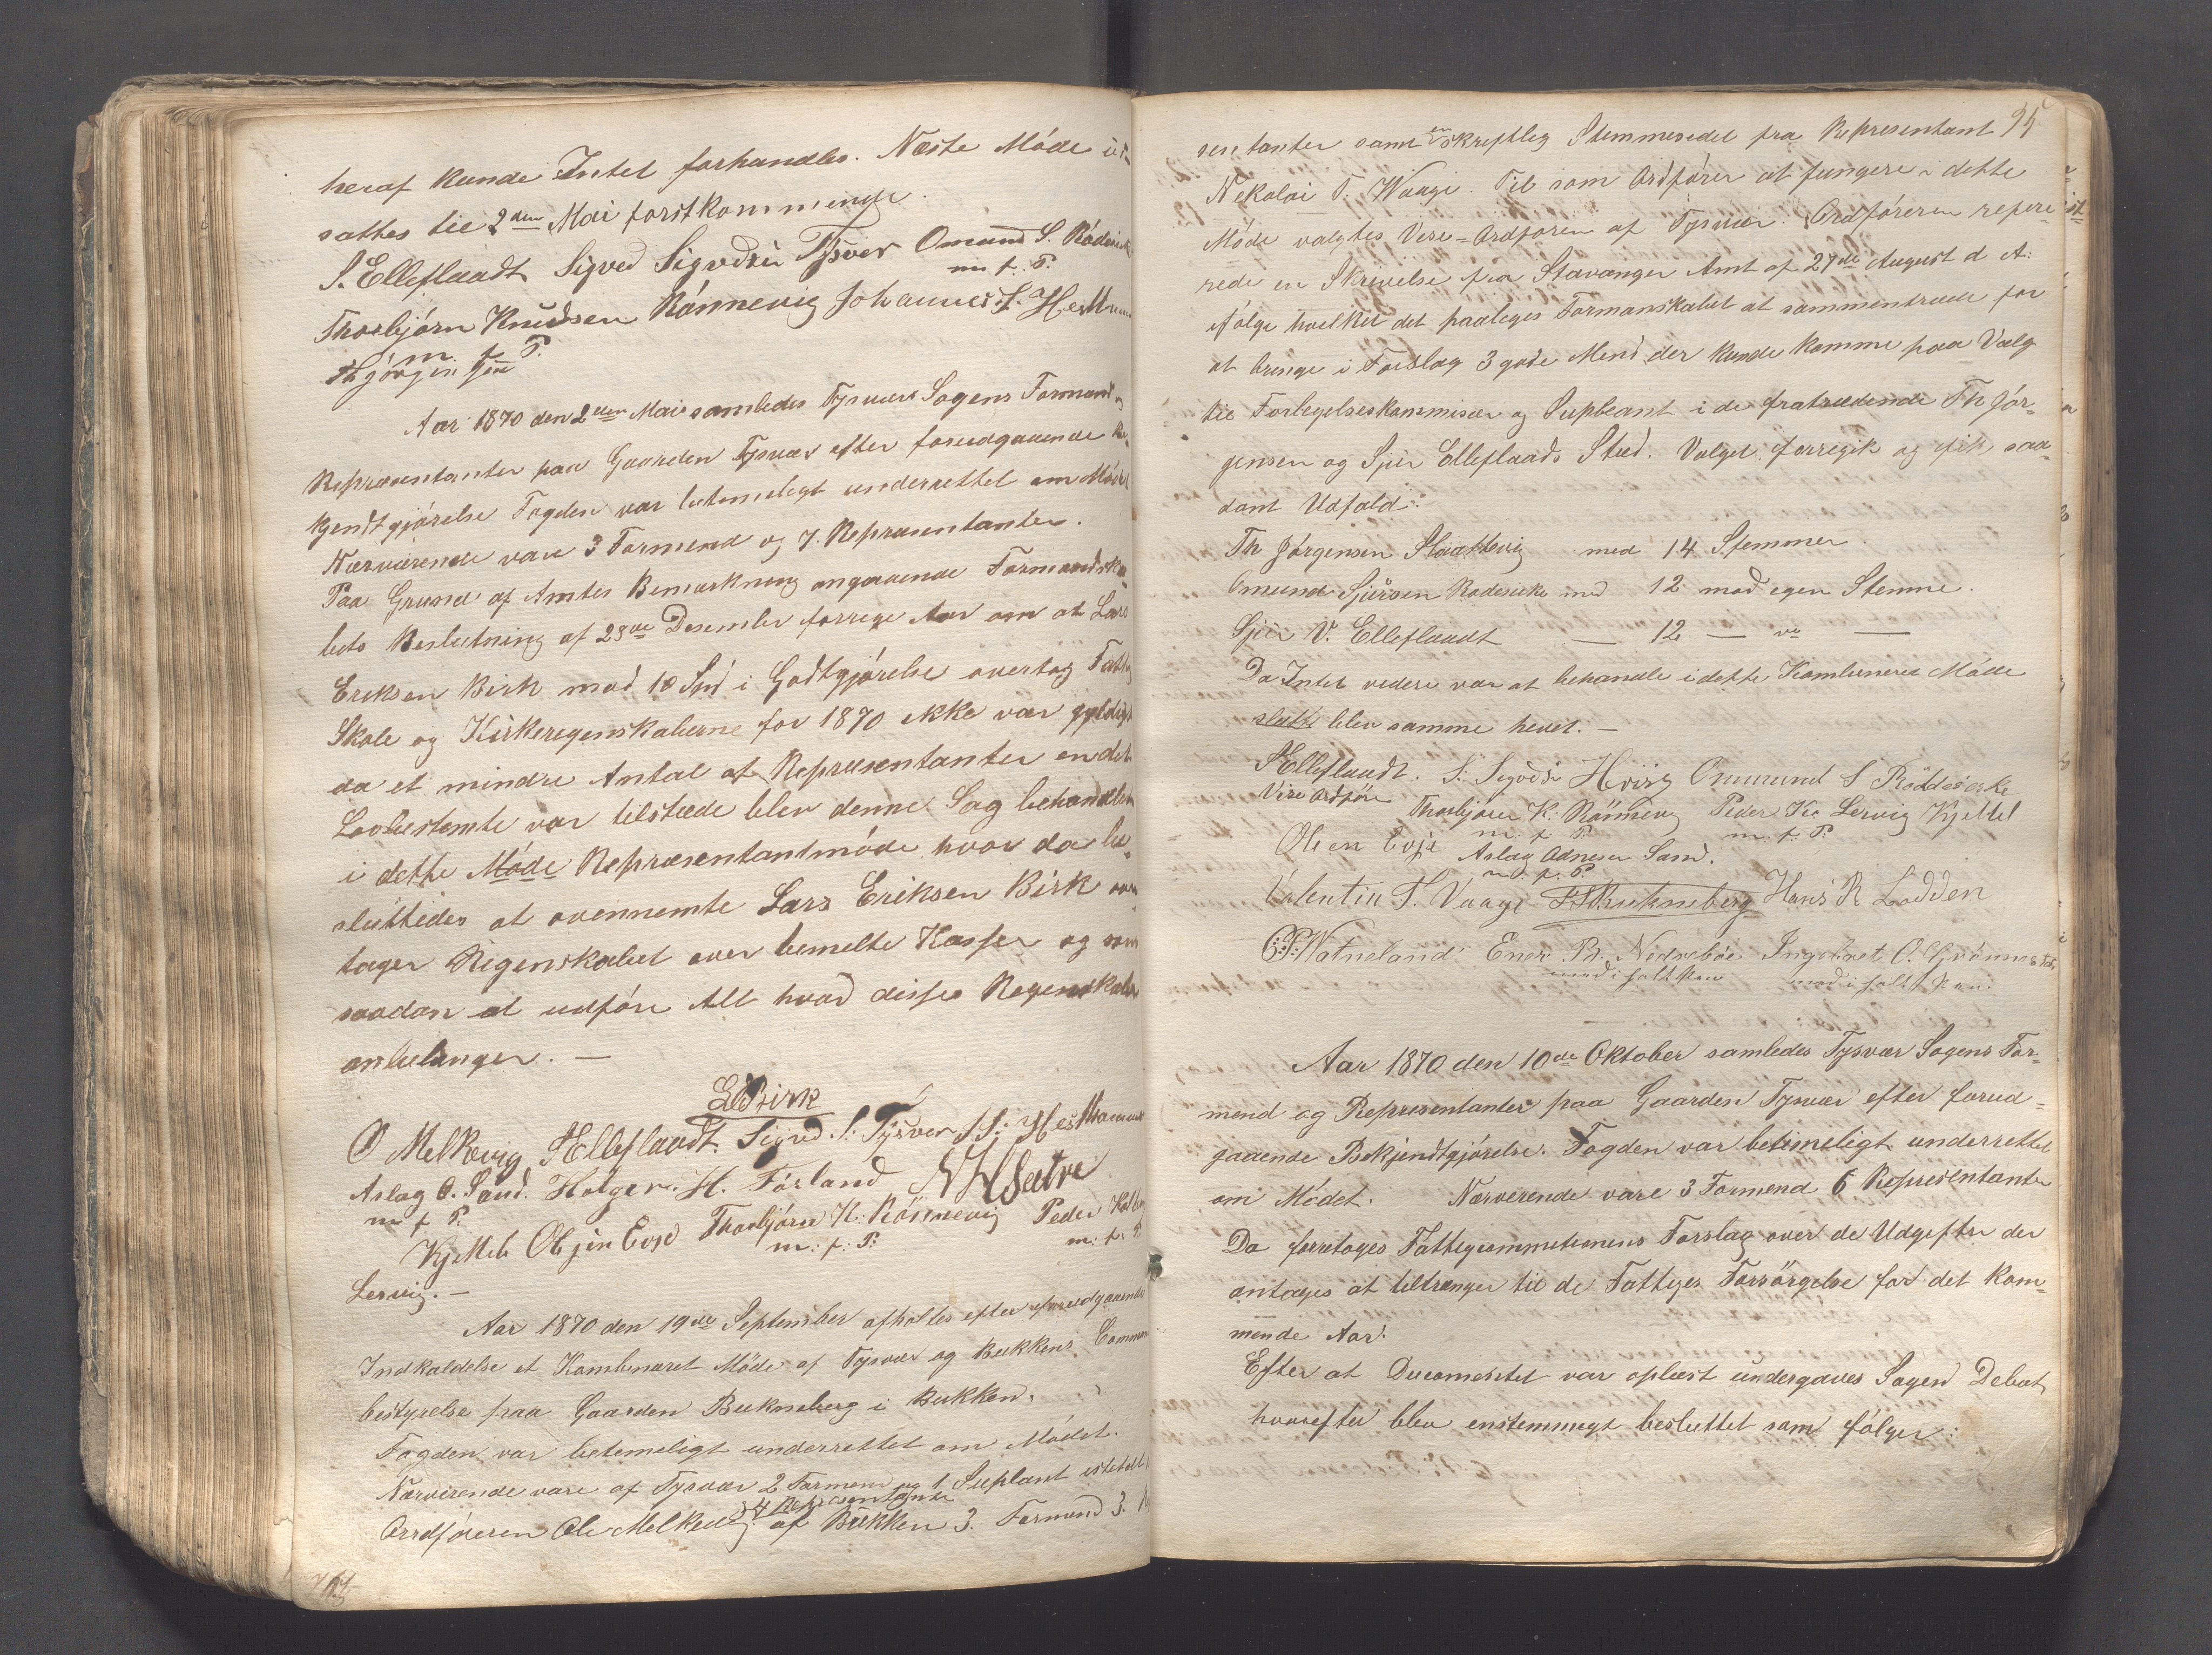 heraf kunde Intet forhandles. Næste Møde
sattes til 2den Mai førstkommende.
S. Elleflaadt Sigved Sigvdsen Tysver Omund S. Rødesike
m. f. P.
Thorbjørn Knudsen Rønnevig Johannes S. Hesthammer
m. f. P.
Thjørgensen
Aar 1870 den 2den Mai samledes Tysvær Sogens Formænd og
Repræsentanter paa Gaarden Tysvær efter forudgaaende Be-
kjendtgjørelse Fogden var betimeligt underrettet om Mødet
Nærværende vare 3 Formænd og 7. Repræsentanter.
Paa Grund af Amtes Bemærkning angaaende Formandska-
bets Beslutning af 28de Desember forrige Aar om at Lars
Eriksen Birk mod 10 Spd i Godtgjørelse overtog Fattig
Skole og Kirkeregnskaberne for 1870 ikke var gyldigt
da et mindre Antal af Repræsentanter en det
Lovbestemte var tilstæde blev denne Sag behandlet
i dette Møde Repræsentantmøde hvor da be-
sluttedes at ovennemte Lars Eriksen Birk over
tager Regenskabet over bemelte Kasser og som
saadan at udføre Alt hvad disses Regenskaber
anbelanger. —
LEBirk
O Melkevig SElleflaadt. Sigvd. S: Tysver J S: Hesthammer
Aslag O. Sand. Holger. H. Førland NNSætre
m f P.
Kjetteb Olsen Evje Thorbjørn K: Rönnevig Peder
m: f: P: m: f: P.
Lervig. —
Aar 1870 den 19de September afholtes efter forudgaaende
Indkaldelse et Kombineret Møde af Tysvær og Bukkens Commune
bestyrelse paa Gaarden Bukneberg i Bukken.
Fogden var betimeligt underrettet om Mødet.
Nærværende vare af Tysvær 2 Formænd og 1 Suplant istedetf
4 Repræsentanter
Orrdføreren Ole Melkevig. af Bukken 3. Formænd 3. R
95
sentanter samt en skreftlig Stemmesedel fra Representant
Nekolai T. Waage. Til som Ordfører at fungere i dette
Møde valgtes Vise-Ordføren af Tysvær. Ordføreren refere-
rede en Skrivelse fra Stavanger Amt af 27de August d A:
ifølge hvelket det paaleges Formanskabet at sammentræde for
at bringe i Forslag 3 gode Mend der kunde komme paa Valg
til Forlegelseskommisær og Supleant i de fratrædende Th Jør-
gensen og Sjur Elleflaads Sted. Valget forregik og fik saa-
dant Udfald:
Th Jørgensen Slaattevig med 14 Stemmer.
Omund Sjursen Rødesike med 12 mod egen Stemme.
Sjur V. Elleflaadt — 12 — " —
Da Intet vedere var at behandle i dette Kombineret Møde
slutt blev samme hevet. —
SElleflaadt. S: Sigvds Hviig Ommund S Røddesicke
Vise Ordfør
Thorbjørn K: Rönnevig Peder Kn Lervig Kjettel
m. f. P. m. f. P.
Olsen Evje Aslag Adnesen Sand.
m. f. P.
Valentin T. Vaage Bukneberg Hans R Lodden
Vatneland Ener Nedrebøe Ingebret O. Grønnes
med i holt Pen med i holt Pen
Aar 1870 den 10de Oktober samledes Tysvær Sogens For-
mend og Repræsentanter paa Gaarden Tysvær efter forud-
gaaende Bekjendtgjørelse. Fogden var betimeligt underrettet
om Mødet. Nærverende vare 3 Formend 6 Representanter
Da foretoges Fattigcommitionens Forslag over de Udgifter der
antages at tiltrænges til de Fattiges Forsørgelse for det kom-
mende Aar.
Efter at Ducomentet var oplæst undergaves Sagen Debat
hvorefter blev enstemmigt besluttet som følger: